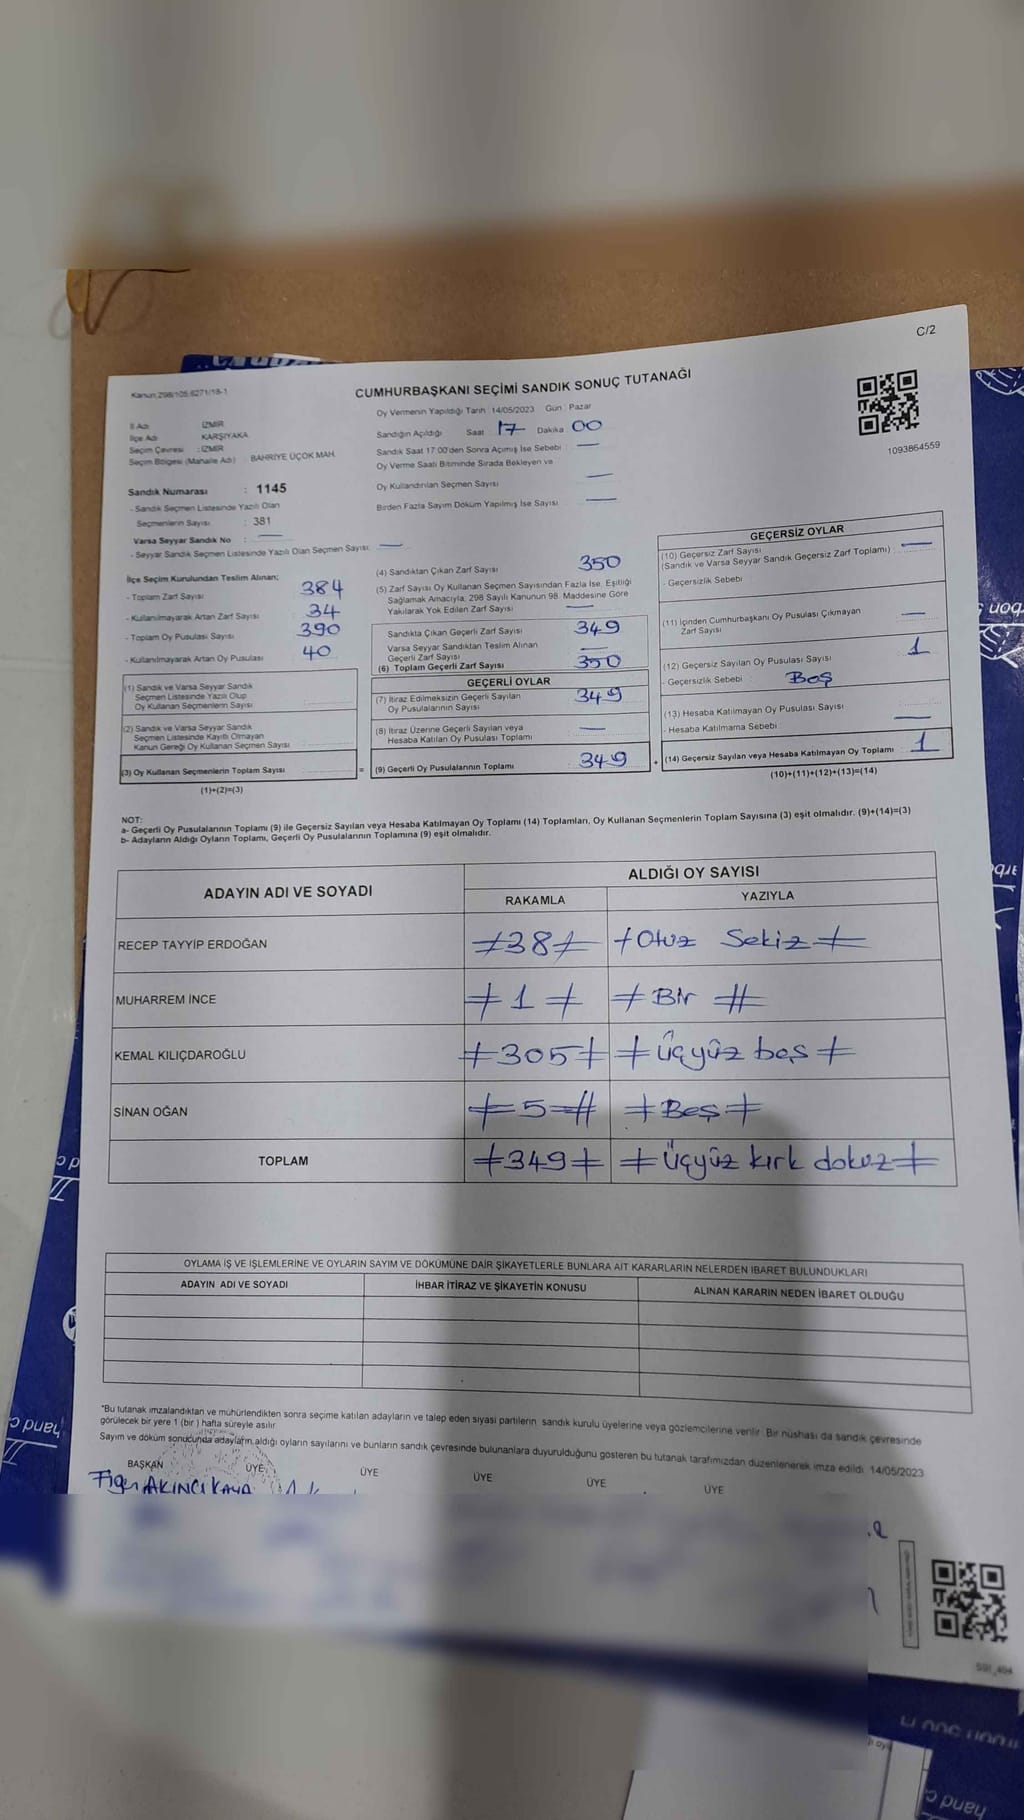 C/2
Kanun 298/105,6271/18-1
CUMHURBAŞKANI SEÇİMİ SANDIK SONUÇ TUTANAĞI
Oy Vermenin Yapıldığı Tarih : 14/05/2023 Gün : Pazar
İl Adı : İZMİR
İlçe Adı : KARŞIYAKA
Seçim Çevresi : İZMİR
Seçim Bölgesi (Mahalle Adı) : BAHRİYE ÜÇOK MAH.
Sandığın Açıldığı Saat 17 Dakika 00
Sandık Saat 17.00'den Sonra Açılmış İse Sebebi :
Oy Verme Saati Bitiminde Sırada Bekleyen ve
Oy Kullandırılan Seçmen Sayısı
Birden Fazla Sayım Döküm Yapılmış İse Sayısı
1093864559
Sandık Numarası : 1145
- Sandık Seçmen Listesinde Yazılı Olan
Seçmenlerin Sayısı : 381
Varsa Seyyar Sandık No :
- Seyyar Sandık Seçmen Listesinde Yazılı Olan Seçmen Sayısı:
İlçe Seçim Kurulundan Teslim Alınan;
- Toplam Zarf Sayısı 384
- Kullanılmayarak Artan Zarf Sayısı 34
- Toplam Oy Pusulası Sayısı 390
- Kullanılmayarak Artan Oy Pusulası 40
(1) Sandık ve Varsa Seyyar Sandık
Seçmen Listesinde Yazılı Olup
Oy Kullanan Seçmenlerin Sayısı
(2) Sandık ve Varsa Seyyar Sandık
Seçmen Listesinde Kayıtlı Olmayan
Kanun Gereği Oy Kullanan Seçmen Sayısı
(3) Oy Kullanan Seçmenlerin Toplam Sayısı
(1)+(2)=(3)
(4) Sandıktan Çıkan Zarf Sayısı 350
(5) Zarf Sayısı Oy Kullanan Seçmen Sayısından Fazla İse, Eşitliği
Sağlamak Amacıyla, 298 Sayılı Kanunun 98. Maddesine Göre
Yakılarak Yok Edilen Zarf Sayısı
Sandıkta Çıkan Geçerli Zarf Sayısı 349
Varsa Seyyar Sandıktan Teslim Alınan
Geçerli Zarf Sayısı
(6) Toplam Geçerli Zarf Sayısı 350
GEÇERLİ OYLAR
(7) İtiraz Edilmeksizin Geçerli Sayılan
Oy Pusulalarının Sayısı 349
(8) İtiraz Üzerine Geçerli Sayılan veya
Hesaba Katılan Oy Pusulası Toplamı
= (9) Geçerli Oy Pusulalarının Toplamı 349 +
GEÇERSİZ OYLAR
(10) Geçersiz Zarf Sayısı
(Sandık ve Varsa Seyyar Sandık Geçersiz Zarf Toplamı)
- Geçersizlik Sebebi
(11) İçinden Cumhurbaşkanı Oy Pusulası Çıkmayan
Zarf Sayısı
(12) Geçersiz Sayılan Oy Pusulası Sayısı 1
- Geçersizlik Sebebi : Boş
(13) Hesaba Katılmayan Oy Pusulası Sayısı
- Hesaba Katılmama Sebebi :
(14) Geçersiz Sayılan veya Hesaba Katılmayan Oy Toplamı 1
(10)+(11)+(12)+(13)=(14)
NOT:
a- Geçerli Oy Pusulalarının Toplamı (9) ile Geçersiz Sayılan veya Hesaba Katılmayan Oy Toplamı (14) Toplamları, Oy Kullanan Seçmenlerin Toplam Sayısına (3) eşit olmalıdır. (9)+(14)=(3)
b- Adayların Aldığı Oyların Toplamı, Geçerli Oy Pusulalarının Toplamına (9) eşit olmalıdır.
ADAYIN ADI VE SOYADI
ALDIĞI OY SAYISI
RAKAMLA YAZIYLA
RECEP TAYYİP ERDOĞAN 38 Otuz Sekiz
MUHARREM İNCE 1 Bir
KEMAL KILIÇDAROĞLU 305 Üçyüz beş
SİNAN OĞAN 5 Beş
TOPLAM 349 Üçyüz kırk dokuz
OYLAMA İŞ VE İŞLEMLERİNE VE OYLARIN SAYIM VE DÖKÜMÜNE DAİR ŞİKAYETLERLE BUNLARA AİT KARARLARIN NELERDEN İBARET BULUNDUKLARI
ADAYIN ADI VE SOYADI İHBAR İTİRAZ VE ŞİKAYETİN KONUSU ALINAN KARARIN NEDEN İBARET OLDUĞU
*Bu tutanak imzalandıktan ve mühürlendikten sonra seçime katılan adayların ve talep eden siyasi partilerin sandık kurulu üyelerine veya gözlemcilerine verilir. Bir nüshası da sandık çevresinde
görülecek bir yere 1 (bir) hafta süreyle asılır.
Sayım ve döküm sonucunda adayların aldığı oyların sayılarını ve bunların sandık çevresinde bulunanlara duyurulduğunu gösteren bu tutanak tarafımızdan düzenlenerek imza edildi. 14/05/2023
BAŞKAN ÜYE ÜYE ÜYE ÜYE ÜYE
AKINCI KAYA